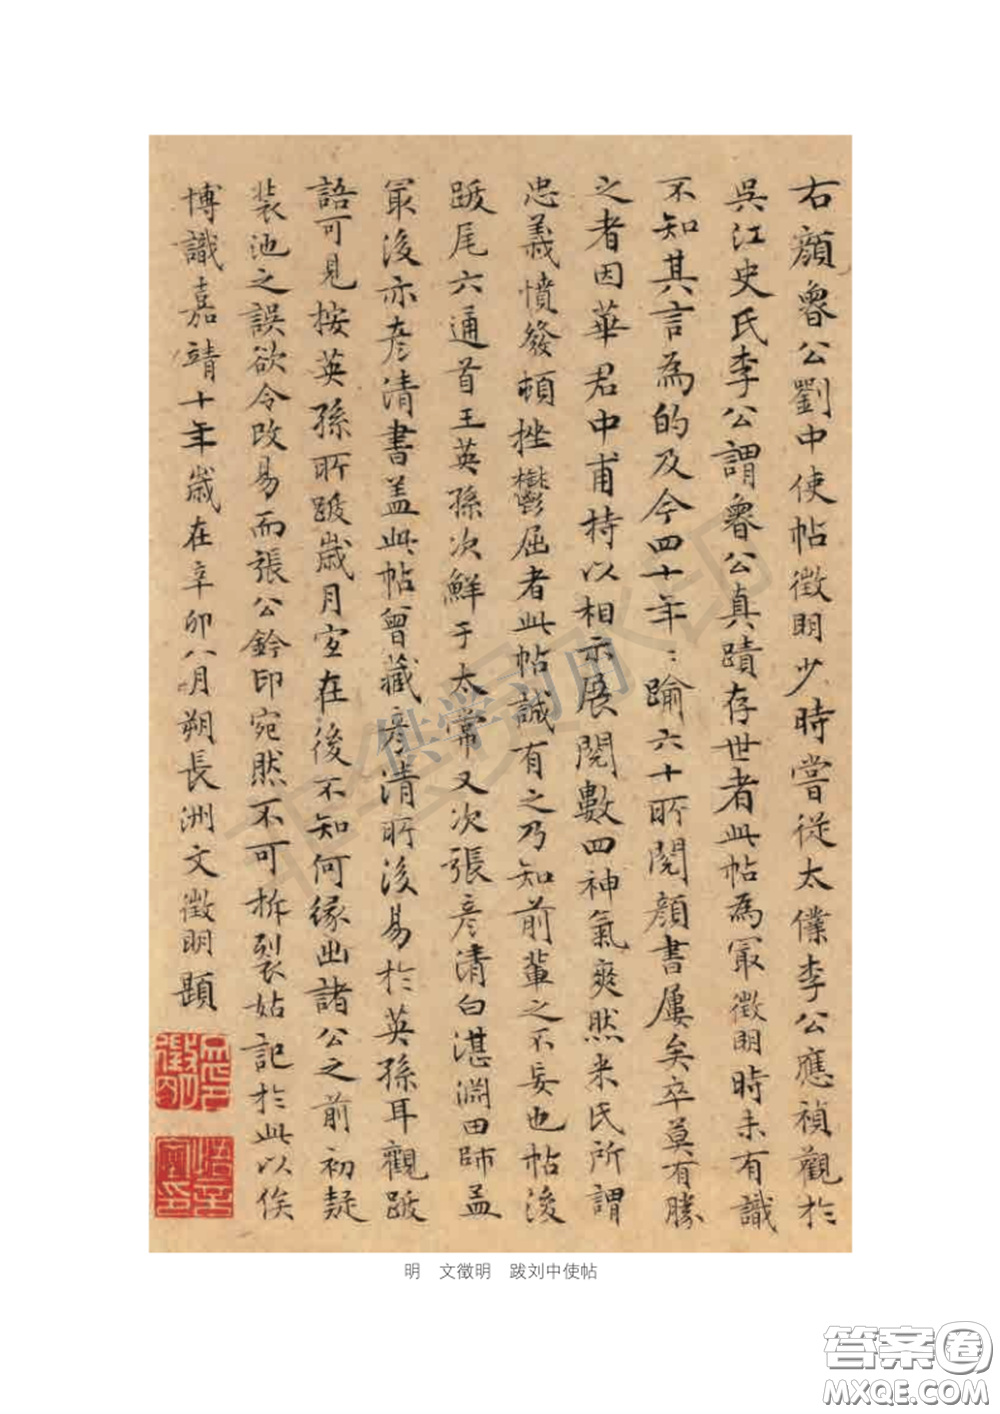 右顏魯公劉中使帖徵明少時嘗從太僕李公應禎觀於
吳江史氏李公謂魯公真蹟存世者此帖為冣徵明時未有識
不知其言為的及今四十年〻踰六十所閱顏書屢矣卒莫有勝
之者因華君中甫持以相示展閱數四神氣爽然米氏所謂
忠義憤發頓挫鬱屈者此帖誠有之乃知前輩之不妄也帖後
跋尾六通首王英孫次鮮于太常又次張彥清白湛淵田師孟
冣後亦彥清書盖此帖曾藏彥清所後易於英孫耳觀跋
語可見按英孫所跋歲月宜在後不知何緣出諸公之前初疑
裝池之誤欲令改易而張公鈐印宛然不可拆裂姑記於此以俟
博識嘉靖十年歲在辛卯八月朔長洲文徵明題
明 文徵明 跋刘中使帖
供学习用
答案圈
MXQE.COM